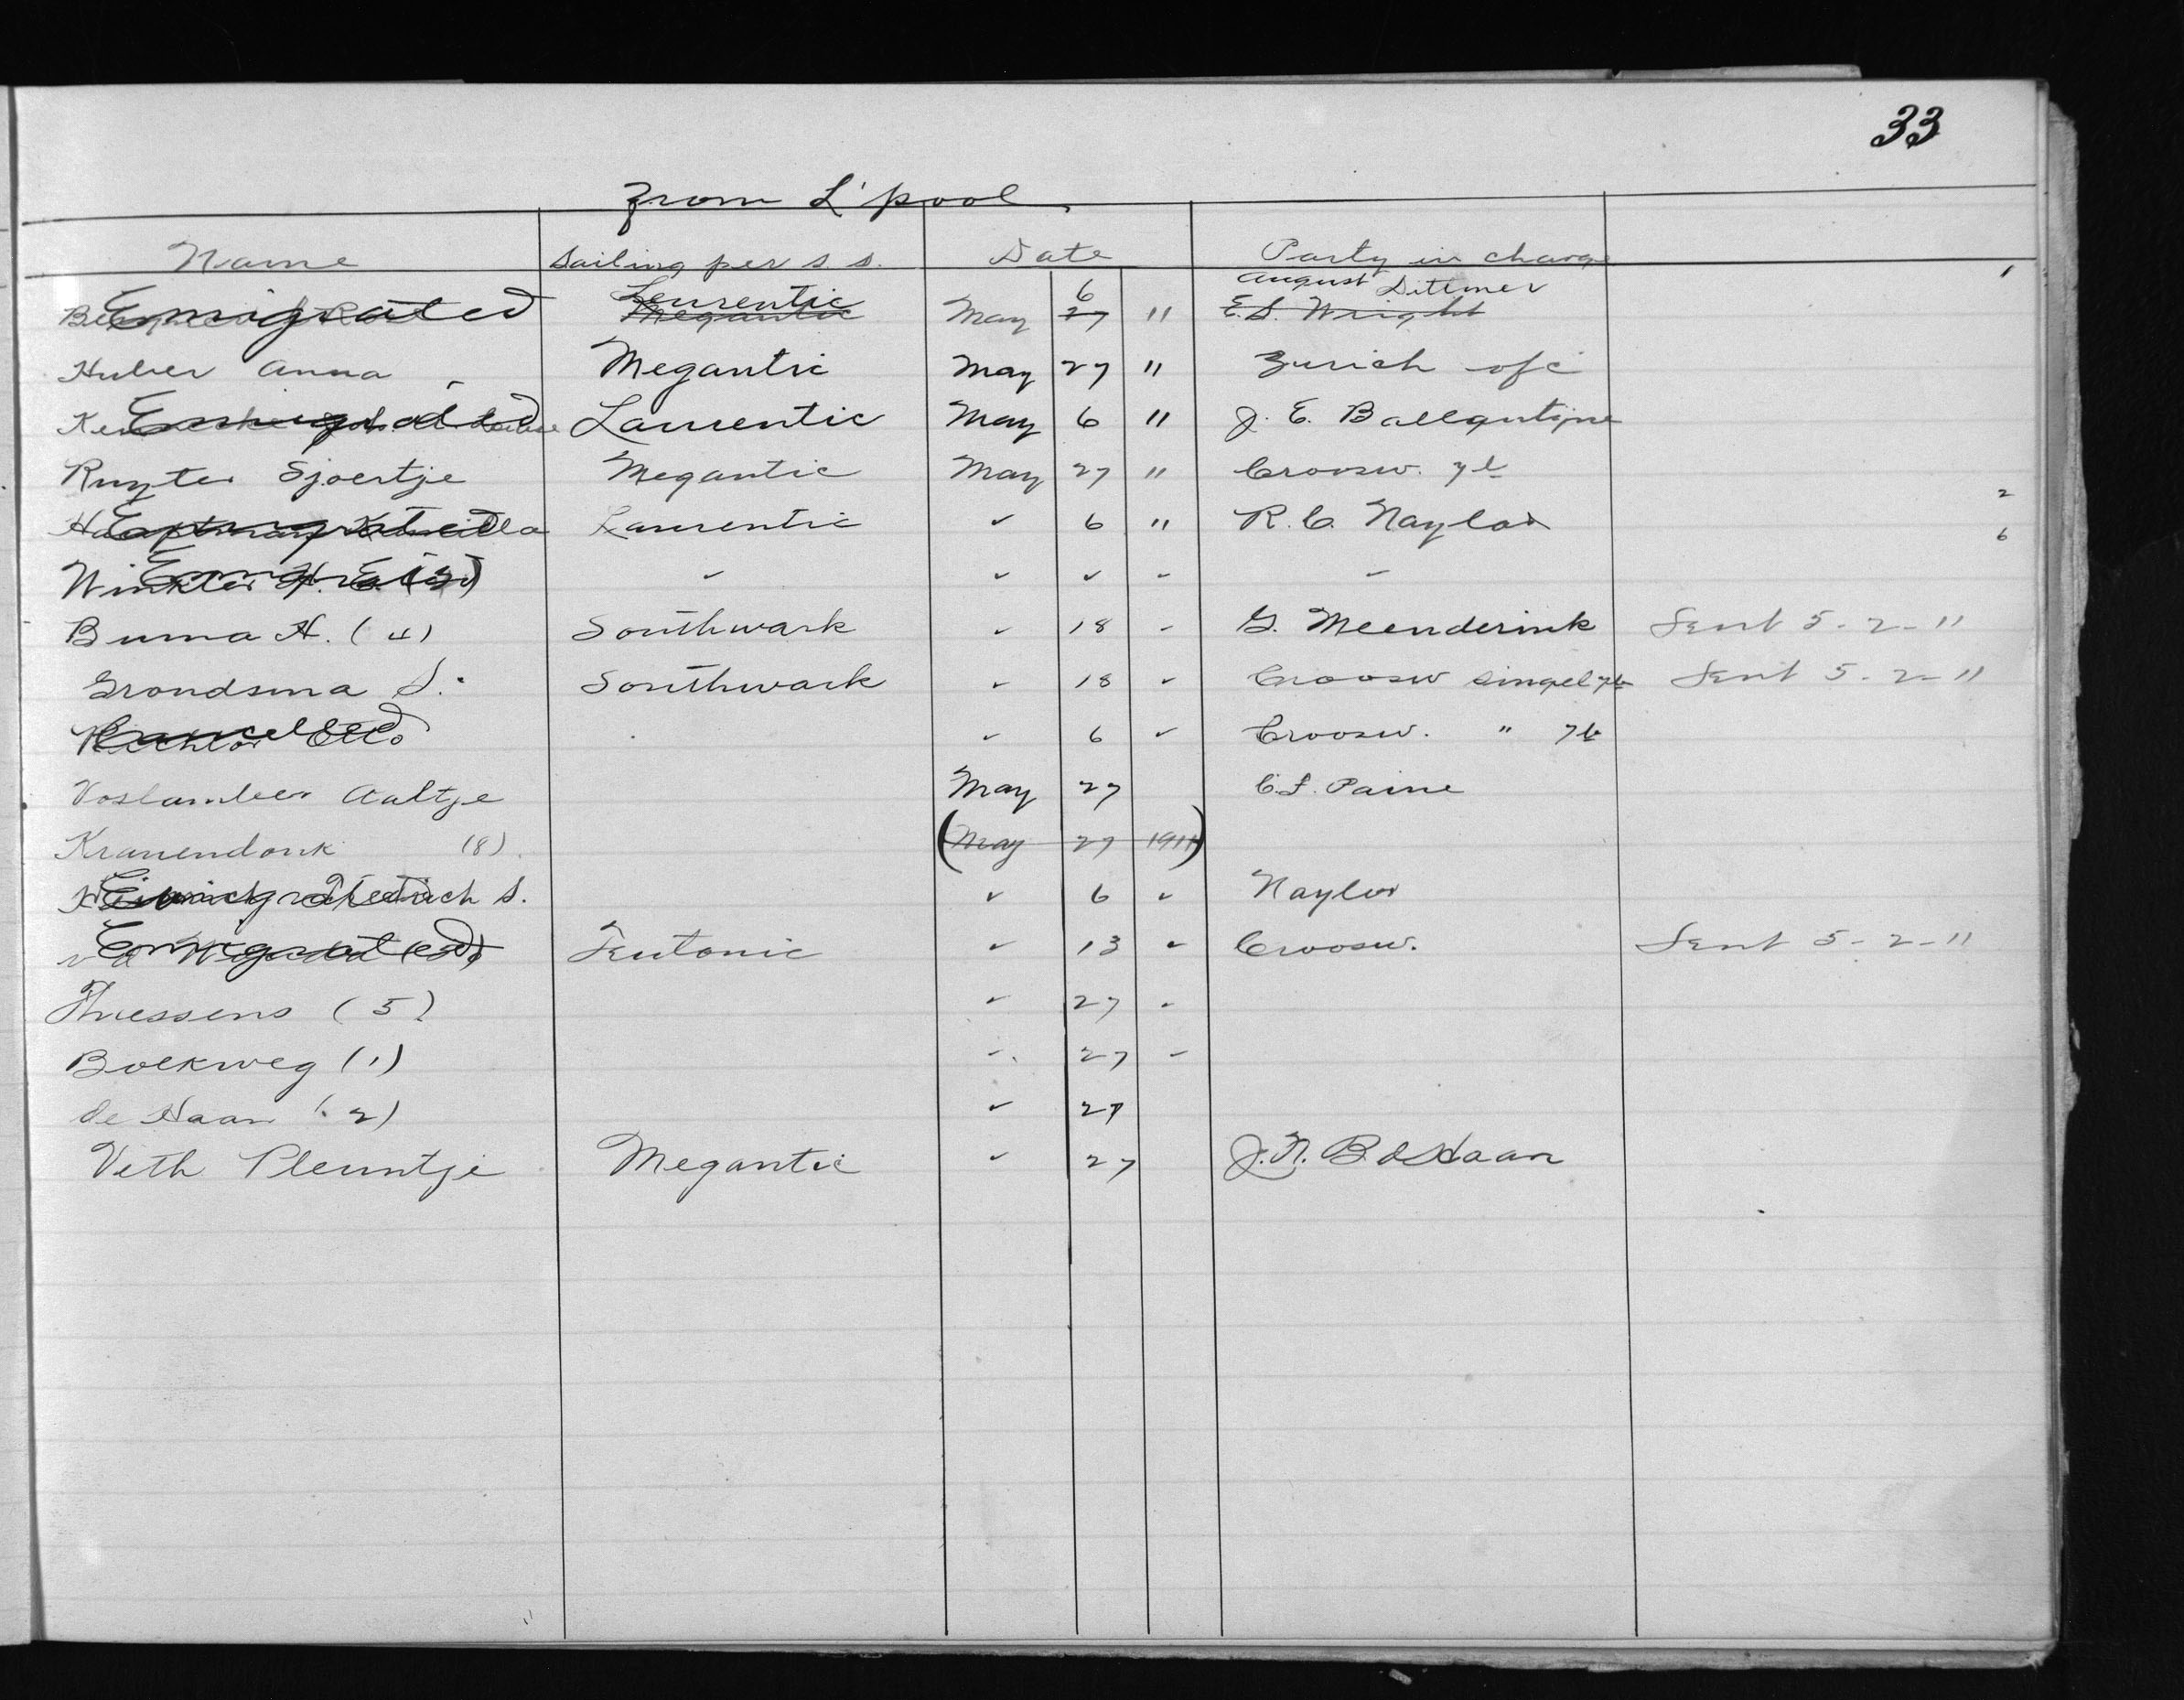 33
From L'pool
Name Sailing per s.s. Date Party in charge
Emigrated Laurentic Megantic May 6 27 " August Dittmer E.S. Wright 1
Huber Anna Megantic May 27 " Zurich ofc
Emigrated Laurentic May 6 " J. E. Ballantyne
Ruyter Sjoertje Megantic May 27 " Croosw. 7b
Emigrated Laurentic " 6 " R. C. Naylor 2
6
Winkler H. E. (3) " " " " "
Buma H. (4) Southwark " 18 " G. Meenderink Sent 5-2-11
Grondsma S. Southwark " 18 " Croosw Singel 7b Sent 5-2-11
Cancelled " 6 " Croosw. " 7b
Voslamber Aaltje May 27 C.F. Paine
Kranendonk (8) (May 27 1911)
Emigrated S. " 6 " Naylor
Emigrated Teutonic " 13 " Croosw. Sent 5-2-11
Thiessens (5) " 27 "
Boekweg (1) " 27 "
de Haan (2) " 27
Veth Pleuntje Megantic " 27 J. N. B. d Haan